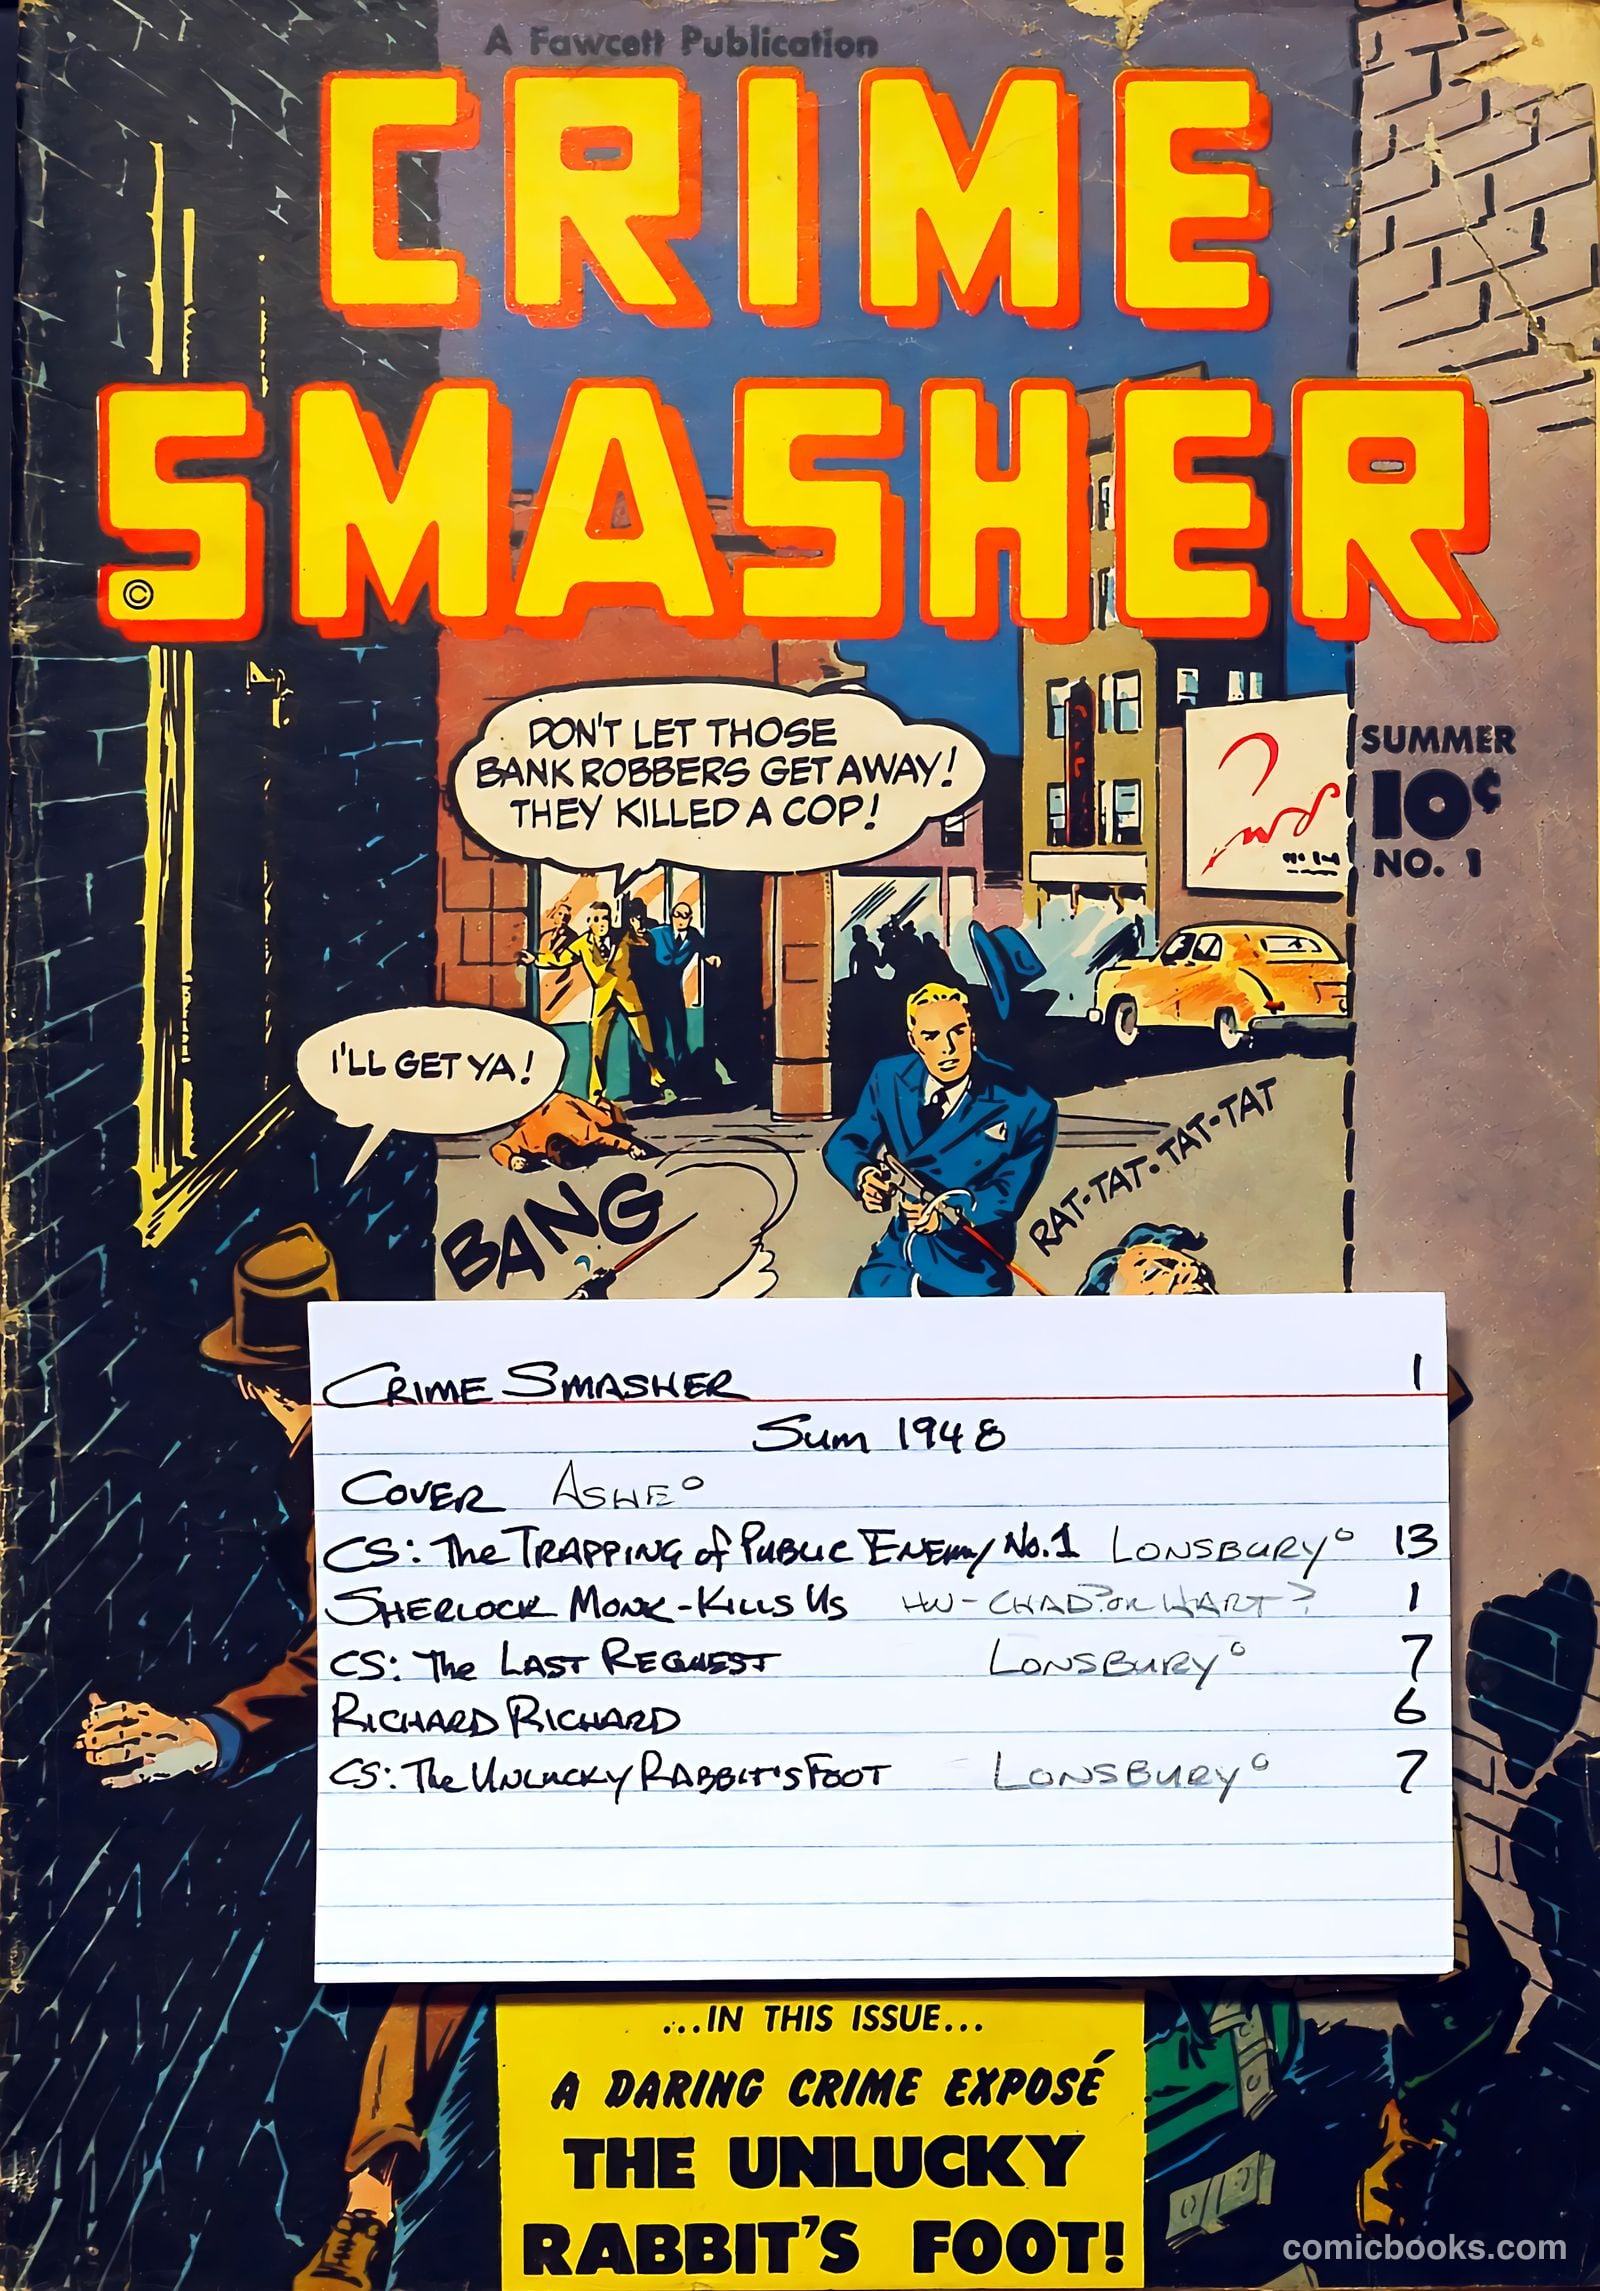 A Fawcett Publication
CRIME
SMASHER
©
SUMMER
10¢
NO. 1
DON'T LET THOSE
BANK ROBBERS GET AWAY!
THEY KILLED A COP!
I'LL GET YA!
BANG
RAT-TAT-TAT-TAT-TAT
CRIME SMASHER 1
Sum 1948
COVER ASHE°
CS: The TRAPPING of PUBLIC ENEMY No. 1 LONSBURY° 13
SHERLOCK MONK-KILLS Us HW-CHAD? OR HART? 1
CS: The LAST REQUEST LONSBURY° 7
RICHARD RICHARD 6
CS: The UNLUCKY RABBIT'S FOOT LONSBURY° 7
...IN THIS ISSUE...
A DARING CRIME EXPOSÉ
THE UNLUCKY
RABBIT'S FOOT!
comicbooks.com